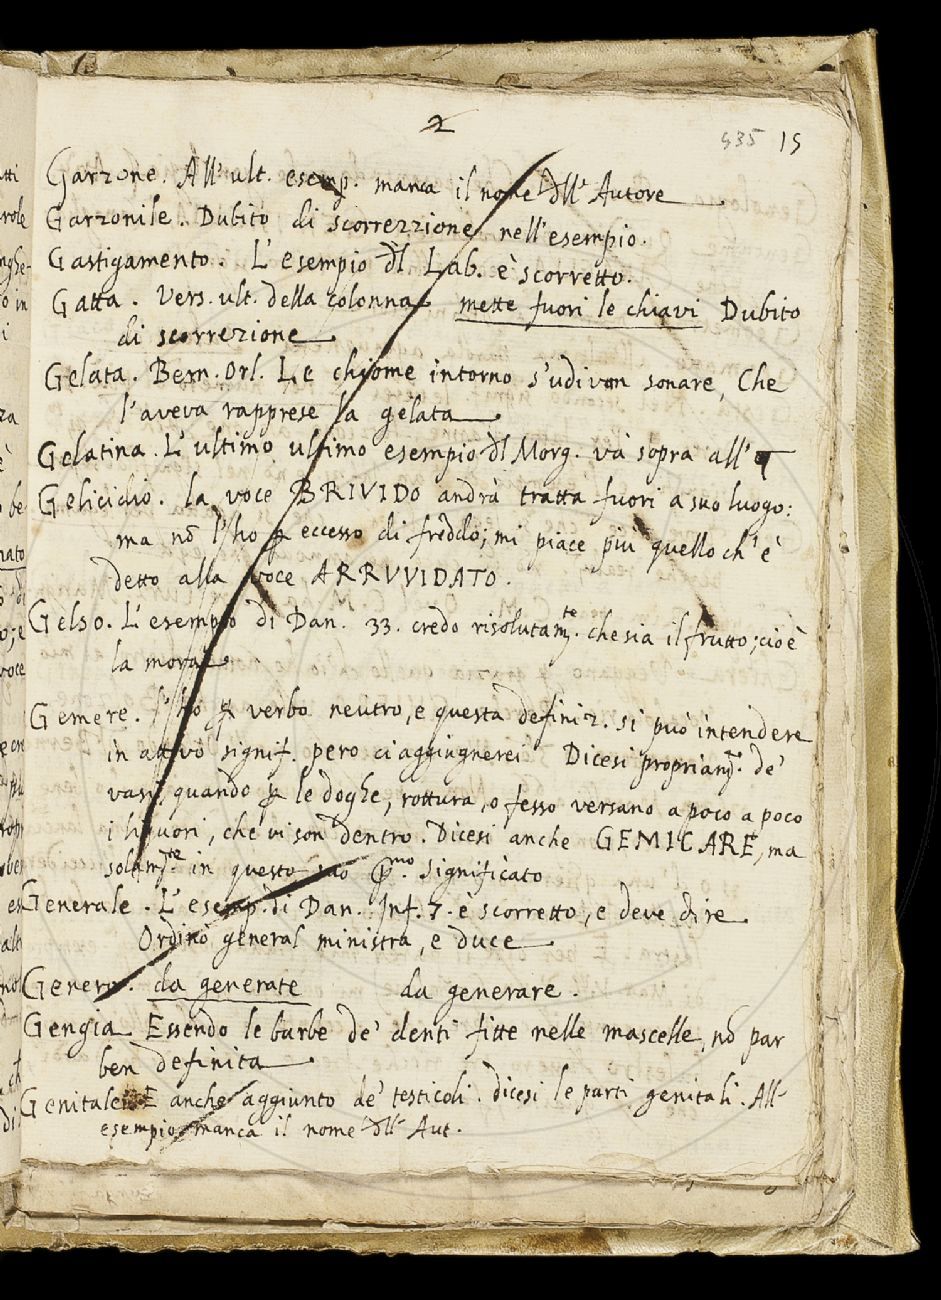 2
535 15
Garzone. All' ult. esemp. manca il nome dll' Autore
Garzonile. Dubito di scorrezzione nell'esempio.
Gastigamento. L'esempio dl Lab. è scorretto.
Gatta. Vers. ult. della colonna mette fuori le chiavi Dubito
di scorrezione
Gelata. Bern. Orl. Le chiome intorno s'udivan sonare, Che
l'aveva rapprese la gelata
Gelatina. L'ultimo ultimo esempio dl Morg. và sopra all'
Gelicidio. la voce BRIVIDO andrà tratta fuori a suo luogo:
ma nō l'ho ꝑ eccesso di freddo; mi piace più quello ch'è
detto alla voce ARRVVIDATO.
Gelso. L'esempio di Dan. 33. credo risolutamte. che sia il frutto; cioè
la mora
Gemere. l'ho ꝑ verbo neutro, e questa definiz. si può intendere
in attivo signif. però ci aggiugnerei Dicesi propriam. de'
vasi, quando ꝑ le doghe, rottura, o fesso versano a poco a poco
i liquori, che vi son dentro. Dicesi anche GEMICARE, ma
solamte. in questo suo pmo. significato
Generale. L'esemp. di Dan. Inf. 7. è scorretto, e deve dire
Ordinò general ministra, e duce
Genero. da generate da generare.
Gengia Essendo le barbe de' denti fitte nelle mascelle, nō par
ben definita
Genitale. E anche aggiunto de' testicoli. dicesi le parti genitali. All'
esempio manca il nome dll' Aut.